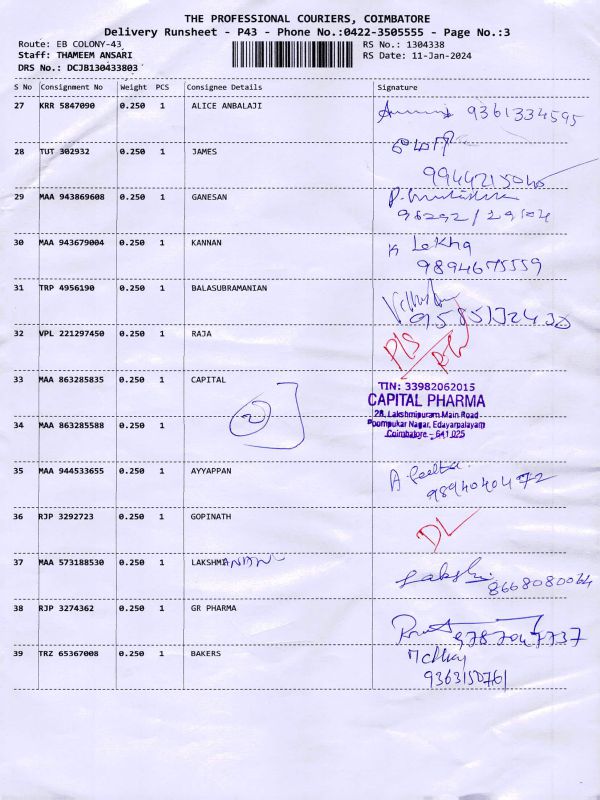 THE PROFESSIONAL COURIERS, COIMBATORE
Delivery Runsheet - P43 - Phone No.:0422-3505555 - Page No.:3
Route: EB COLONY-43 RS No.: 1304338
Staff: THAMEEM ANSARI RS Date: 11-Jan-2024
DRS No.: DCJB130433803
S No Consignment No Weight PCS Consignee Details Signature
27 KRR 5847090 0.250 1 ALICE ANBALAJI 9361334595
28 TUT 302932 0.250 1 JAMES
9944215040
29 MAA 943869608 0.250 1 GANESAN
30 MAA 943679004 0.250 1 KANNAN K Lekha
9894675559
31 TRP 4956190 0.250 1 BALASUBRAMANIAN
9585132430
32 VPL 221297450 0.250 1 RAJA
33 MAA 863285835 0.250 1 CAPITAL TIN: 33982062015
CAPITAL PHARMA
2 28, Lakshmipuram Main Road
34 MAA 863285588 0.250 1 Poompukar Nagar, Edayarpalayam
Coimbatore - 641 025
35 MAA 944533655 0.250 1 AYYAPPAN A. Geetha
9894040472
36 RJP 3292723 0.250 1 GOPINATH DL
37 MAA 573188530 0.250 1 LAKSHMANAN
8668080064
38 RJP 3274362 0.250 1 GR PHARMA
9787047737
39 TRZ 65367008 0.250 1 BAKERS
9363150761